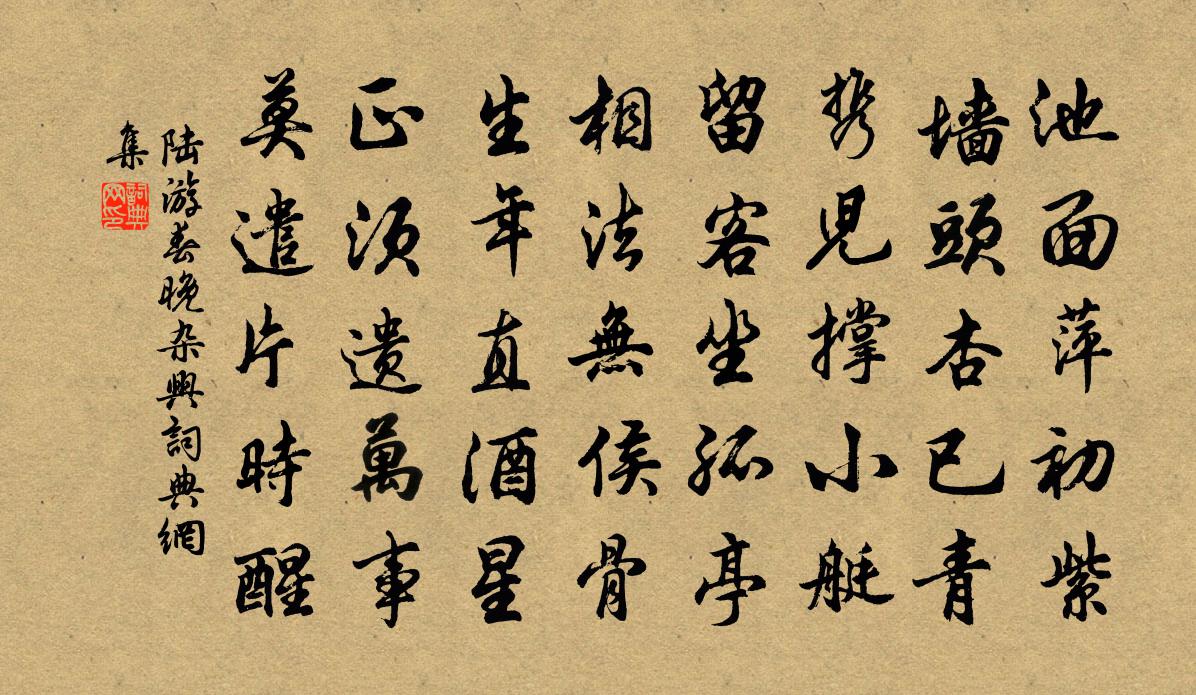 池面萍初紫
墻頭杏已青
携兒撑小艇
留客坐孤亭
相法無侯骨
生年直酒星
正須遺萬事
莫遣片時醒
陸游春晚杂興詞典網
集
詞典
网印